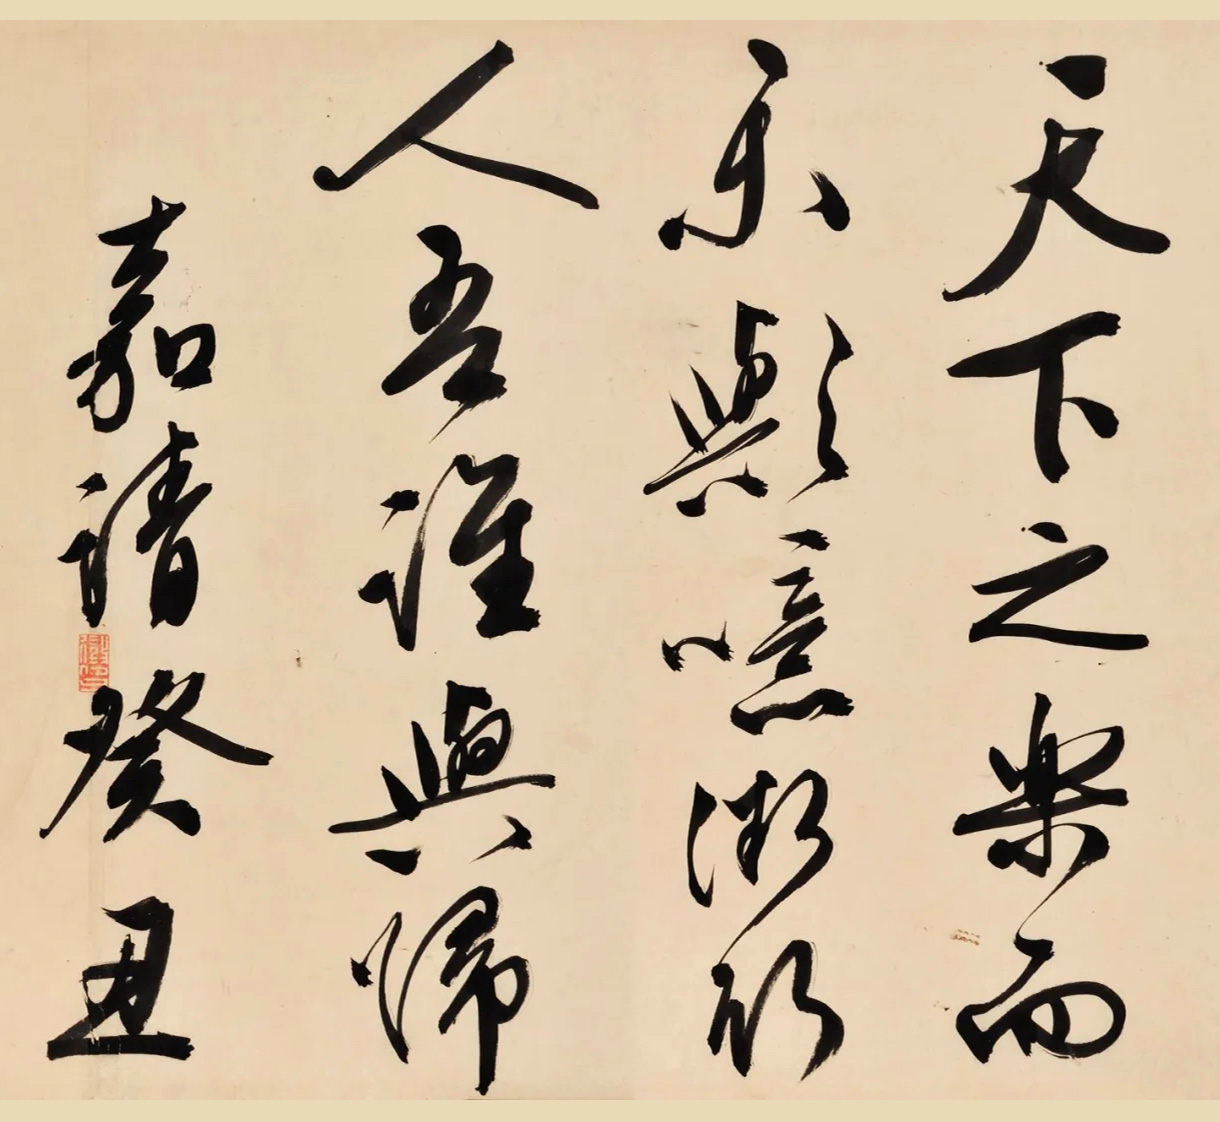 天下之樂而
樂歟噫微斯
人吾誰與歸
嘉靖癸丑